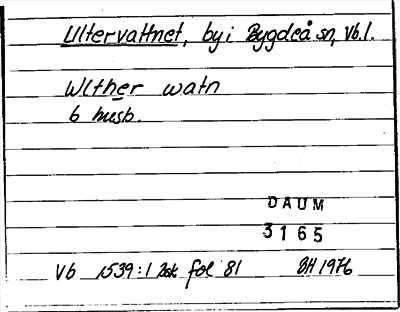 Ultervattnet, by i Bygdeå sn, Vb.l.
Wlther watn
6 husb.
DAUM
3165
Vb 1539:1 fol 81 BH 1976